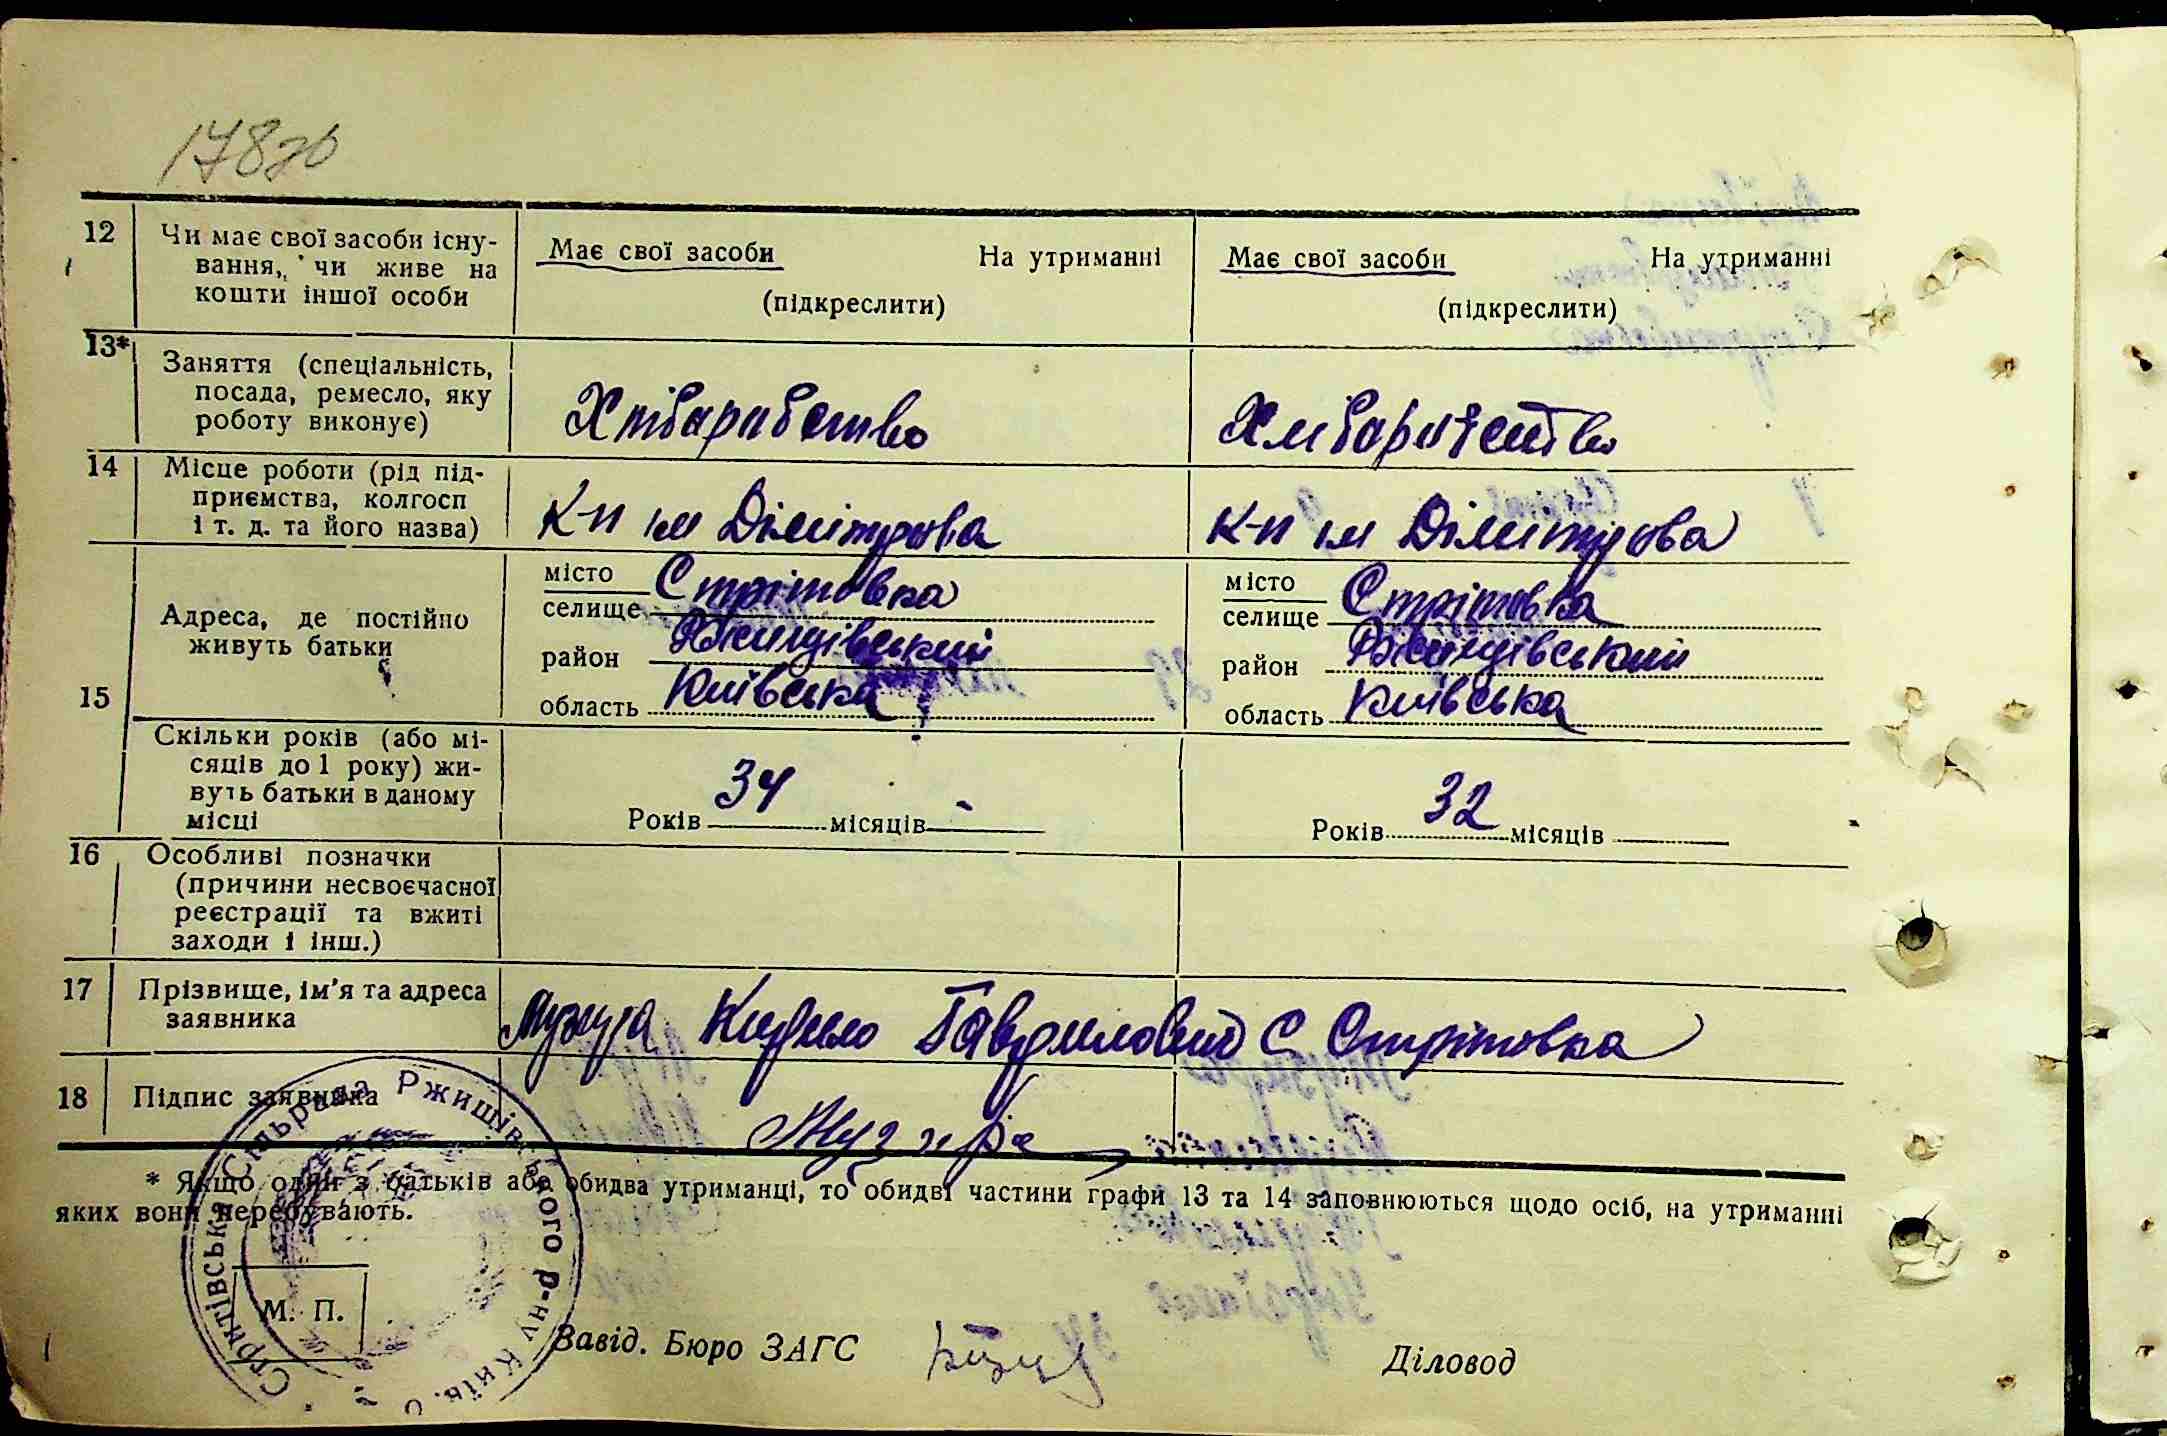 178зв
12 Чи має свої засоби існу- Має свої засоби На утриманні Має свої засоби На утриманні
вання, чи живе на
кошти іншої особи (підкреслити) (підкреслити)
13* Заняття (спеціальність,
посада, ремесло, яку Хлібаробство Хлібаробство
роботу виконує)
14 Місце роботи (рід під-
приємства, колгосп К-п ім Дімітрова К-п ім Дімітрова
і т. д. та його назва)
15 Адреса, де постійно живуть батьки
місто Стрітовка місто Стрітовка
селище селище
район Ржищівський район Ржищівський
область Київська область Київська
Скільки років (або мі-
сяців до 1 року) жи-
вуть батьки в даному
місці Років 34 місяців - Років 32 місяців
16 Особливі позначки
(причини несвоєчасної
реєстрації та вжиті
заходи і інш.)
17 Прізвище, ім'я та адреса Музира Кирило Гаврилович с Стрітовка
заявника
18 Підпис заявника Музира
* Якщо один з батьків або обидва утриманці, то обидві частини графи 13 та 14 заповнюються щодо осіб, на утриманні
яких вони перебувають.
Стритівська Сільрада Ржищівського р-ну Київ. о
М. П.
Завід. Бюро ЗАГС Діловод